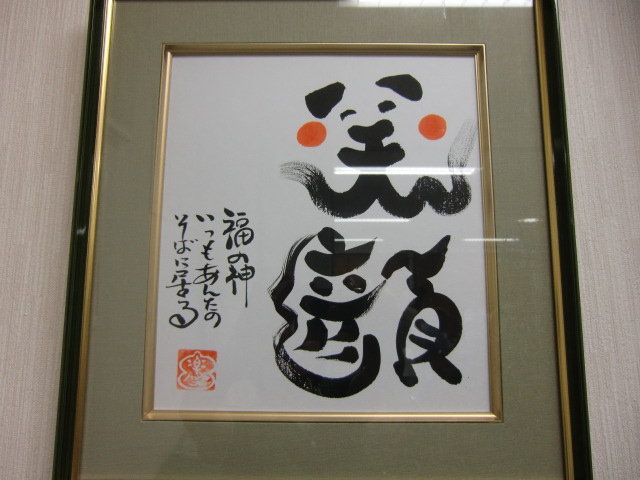 笑顔
福の神
いつもあんたの
そばに居る